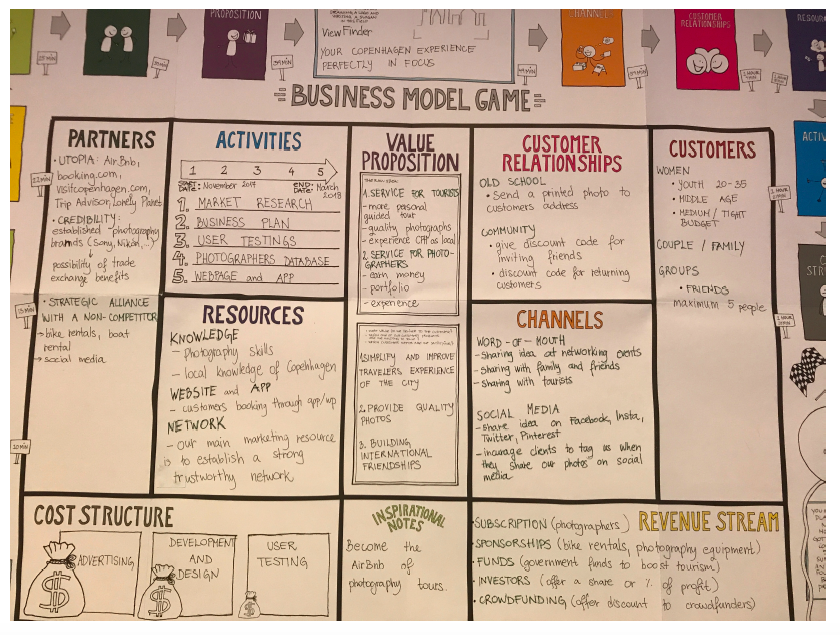 PROPOSITION
ViewFinder
YOUR COPENHAGEN EXPERIENCE
PERFECTLY IN FOCUS
CHANNELS
CUSTOMER
RELATIONSHIPS
=BUSINESS MODEL GAME=
PARTNERS
• UTOPIA: AirBnb,
booking.com,
visitcopenhagen.com,
Trip Advisor, Lonely Planet
• CREDIBILITY:
established photography
brands (Sony, Nikon,...)
↓
possibility of trade
exchange benefits
• STRATEGIC ALLIANCE
WITH A NON-COMPETITOR
→ bike rentals, boat
rental
→ social media
ACTIVITIES
1 2 3 4 5
START DATE: November 2017
END: DATE: March 2018
1. MARKET RESEARCH
2. BUSINESS PLAN
3. USER TESTINGS
4. PHOTOGRAPHERS DATABASE
5. WEBPAGE and APP
RESOURCES
KNOWLEDGE
- Photography skills
- local knowledge of Copenhagen
WEBSITE and APP
- customers booking through app/wp
NETWORK
- Our main marketing resource
is to establish a strong
trustworthy network
VALUE
PROPOSITION
1. SERVICE FOR TOURISTS
- more personal
guided tour
- quality photographs
- experience CPH as local
2. SERVICE FOR PHOTO-
GRAPHERS
- earn money
- portfolio
- experience
1. SIMPLIFY AND IMPROVE
TRAVELERS EXPERIENCE
OF THE CITY
2. PROVIDE QUALITY
PHOTOS
3. BUILDING
INTERNATIONAL
FRIENDSHIPS
CUSTOMER
RELATIONSHIPS
OLD SCHOOL
• Send a printed photo to
customers address
COMMUNITY
• give discount code for
inviting friends
• discount code for returning
customers
CHANNELS
WORD-OF-MOUTH
- sharing idea at networking events
- sharing with family and friends
- sharing with tourists
SOCIAL MEDIA
- share idea on Facebook, Insta,
Twitter, Pinterest
- incurage clients to tag us when
they share our photos on social
media
CUSTOMERS
WOMEN
• YOUTH 20-35
• MIDDLE AGE
• MEDIUM/TIGHT
BUDGET
COUPLE / FAMILY
GROUPS
• FRIENDS
maximum 5 people
COST STRUCTURE
ADVERTISING
DEVELOPMENT
AND
DESIGN
USER
TESTING
$
$
$
INSPIRATIONAL
NOTES
Become the
AirBnb of
photography tours.
REVENUE STREAM
• SUBSCRIPTION (photographers)
• SPONSORSHIPS (bike rentals, photography equipment)
• FUNDS (government funds to boost tourism)
• INVESTORS (offer a share or % of profit)
• CROWDFUNDING (offer discount to crowdfunders)